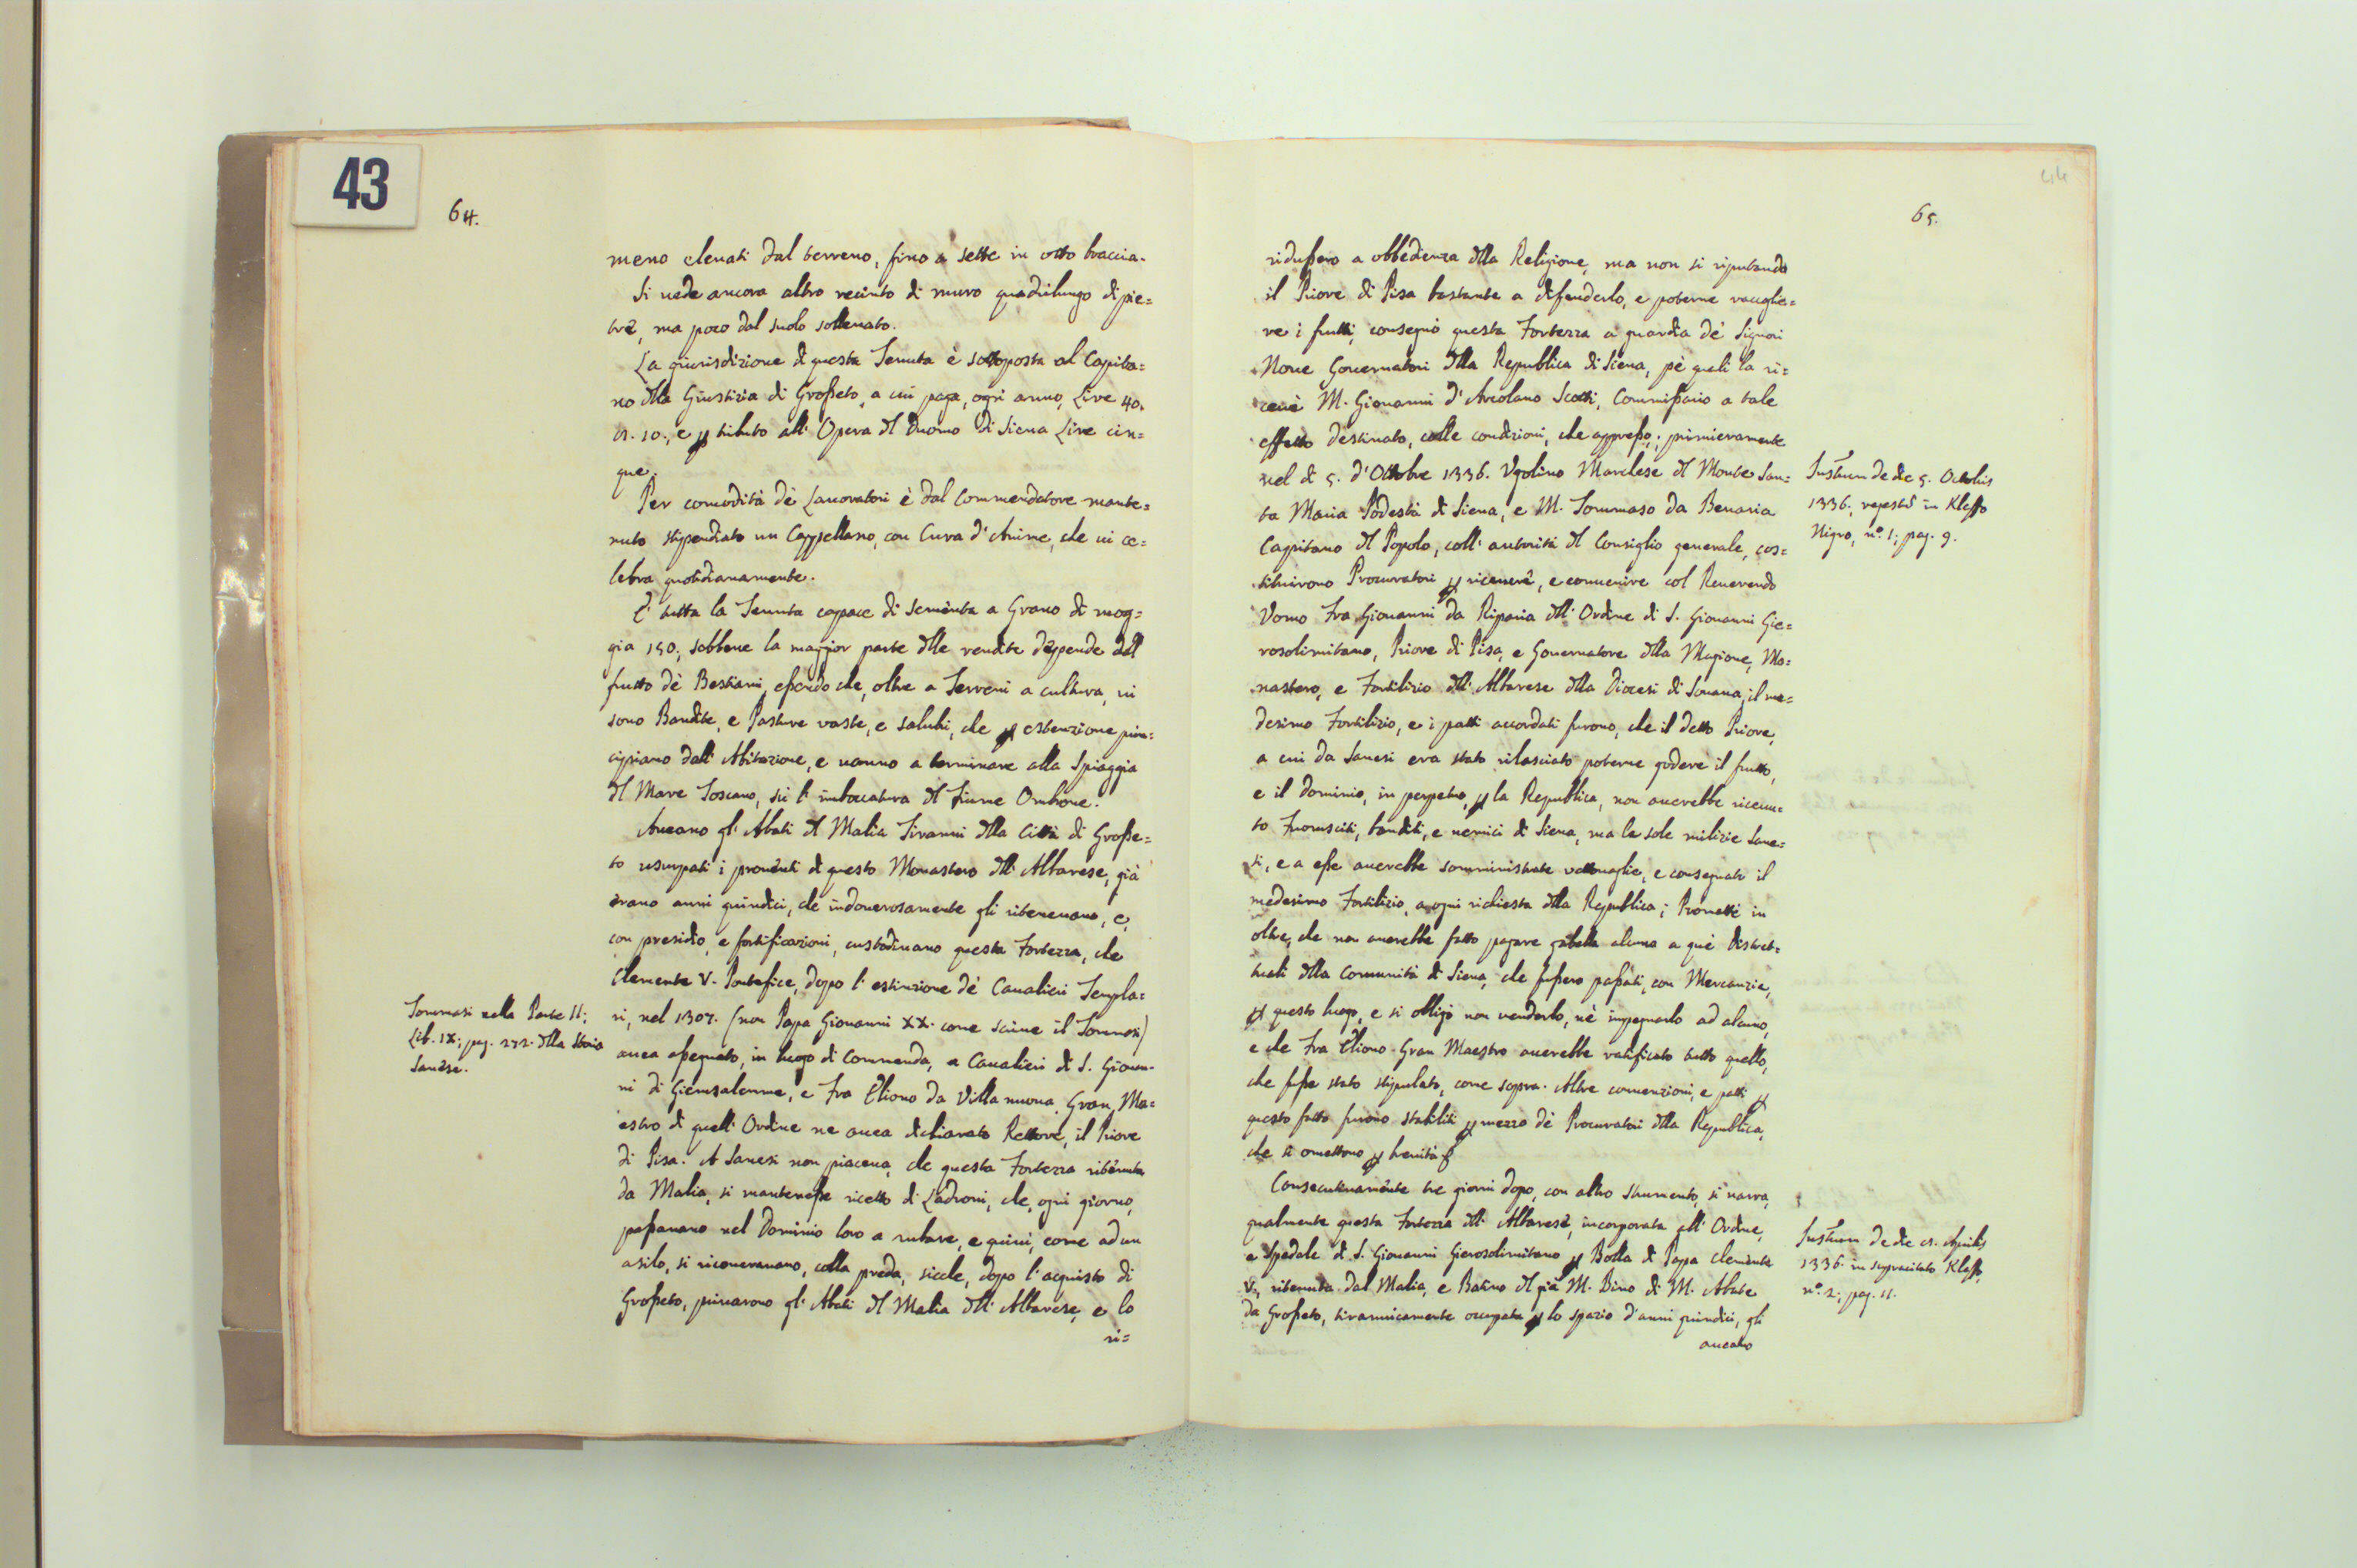 43
64.
meno eleuati dal terreno, fino a sette in otto braccia.
Si uede ancora altro recinto di muro quadrilungo di pie=
tre, ma poco dal suolo solleuato.
La giurisdizione di questa Tenuta è sottoposta al Capita=
no dlla Giustizia di Groſseto, a cui paga, ogni anno, Lire 40.
10., e tributo all' Opera dl Duomo di Siena Lire cin=
que.
Per comodità dè Lauoratori è dal Commendatore mante=
nuto stipendiato un Cappellano, con Cura d'Anime, che ui ce=
lebra quotidianamente.
È tutta la Tenuta capace di sementa a Grano di mog=
gia 150., sebbene la maggior parte dlle rendite deppende dal
frutto dè Bestiami, eſsendo che, oltre a Terreni a cultura, ui
sono Bandite, e Pasture vaste, e salubri, che p estenzione prin=
cipiano dall' Abitazione, e uanno a terminare alla Spiaggia
dl Mare Toscano, sù l'imboccatura dl Fiume Ombrone.
Aueano gl' Abati dl Malia Tiranni dlla Città di Groſse=
to usurpati i prouenti di questo Monastero dll' Albarese, già
erano anni quindici, che indouerosamente gli riteneuano, e,
con presidio, e fortificazioni, custodiuano questa Fortezza, che
Clemente V. Pontefice, dopo l'estinzione dè Caualieri Templa=
ri, nel 1307. (non Papa Giouanni XX. come scriue il Tommasi)
auea aſsegnato, in luogo di Commenda, a Caualieri di S. Gioan-
ni di Gierusalemme, e Fra Eliono da Villa nuoua Gran Ma=
estro di quell' Ordine ne auea dichiarato Rettore, il Priore
di Pisa. A Sanesi non piaceua, che questa Fortezza ritenuta
da Malia, si manteneſse ricetto di Ladroni, che, ogni giorno,
paſsauano nel Dominio loro a rubare, e quiui, come ad un
asilo, si ricouerauano, colla preda, sicche, dopo l'acquisto di
Groſseto, priuarono gl' Abati dl Malia dll' Albarese, e lo
ri=
Tommasi nella Parte II;
Lib. IX; pag. 232. dlla Storia
Sanese.
65.
riduſsero a obbedienza dlla Religione, ma non si riputando
il Priore di Pisa bastante a difenderlo, e poterne raccoglie=
re i frutti, consegnò questa Fortezza a guardia dè Signori
Noue Gouernatori dlla Republica di Siena, pè quali la ri=
ceuè M. Giouanni d'Ancolano Scotti, Commiſsario a tale
effetto destinato, colle condizioni, che appreſso; primieramente
nel dì 5. d'Ottobre 1336. Vgolino Marchese dl Monte San=
ta Maria Podestà di Siena, e M. Tommaso da Benaria
Capitano dl Popolo, coll' autorità dl Consiglio generale, cos=
tituirono Procuratori p riceuere, e conuenire col Reuerendo
Vomo Fra Giouanni da Riparia dll' Ordine di S. Giouanni Gie=
rosolimitano, Priore di Pisa, e Gouernatore dlla Magione, Mo=
nastero, e Fortilizio dll' Albarese dlla Diocesi di Souana, il me=
desimo Fortilizio, e i patti accordati furono, che il detto Priore,
a cui da Sanesi era stato rilasciato poterne godere il frutto,
e il Dominio, in perpetuo, p la Republica, non auerebbe riceuu=
to Fuorusciti, banditi, e nemici di Siena, ma le sole milizie Sane=
si, e a eſse auerebbe somministrate vettouaglie, e consegnato il
medesimo Fortilizio, a ogni richiesta dlla Republica; Promette in
oltre, che non auerebbe fatto pagare gabella alcuna a què Distret=
tuali dlla Comunità di Siena, che fuſsero paſsati, con Mercanzie,
p questo luogo, e si obligò non venderlo, nè impegnarlo ad alcuno,
e che Fra Eliono Gran Maestro auerebbe ratificato tutto quello,
che fuſse stato stipulato, come sopra. Altre conuenzioni, e patti p
questo fatto furono stabiliti p mezzo dè Procuratori dlla Republica,
che si omettono p breuità
Consecutiuamente tre giorni dopo, con altro strumento, si narra,
qualmente questa Fortezza dll' Albarese, incorporata all' Ordine,
e Spedale di S. Giouanni Gierosolimitano p Bolla di Papa Clemente
V., ritenuta dal Malia, e Batino dl già M. Bino di M. Abate
da Groſseto, tirannicamente occupata p lo spazio d'anni quindici, gli
aueano
Instrum de die 5. Octobris
1336., in Kleffo
Nigro, n.º 1; pag. 9.
Instrum de die Aprilis
1336. in supracitato Kleffo,
n.º 2; pag. 11.